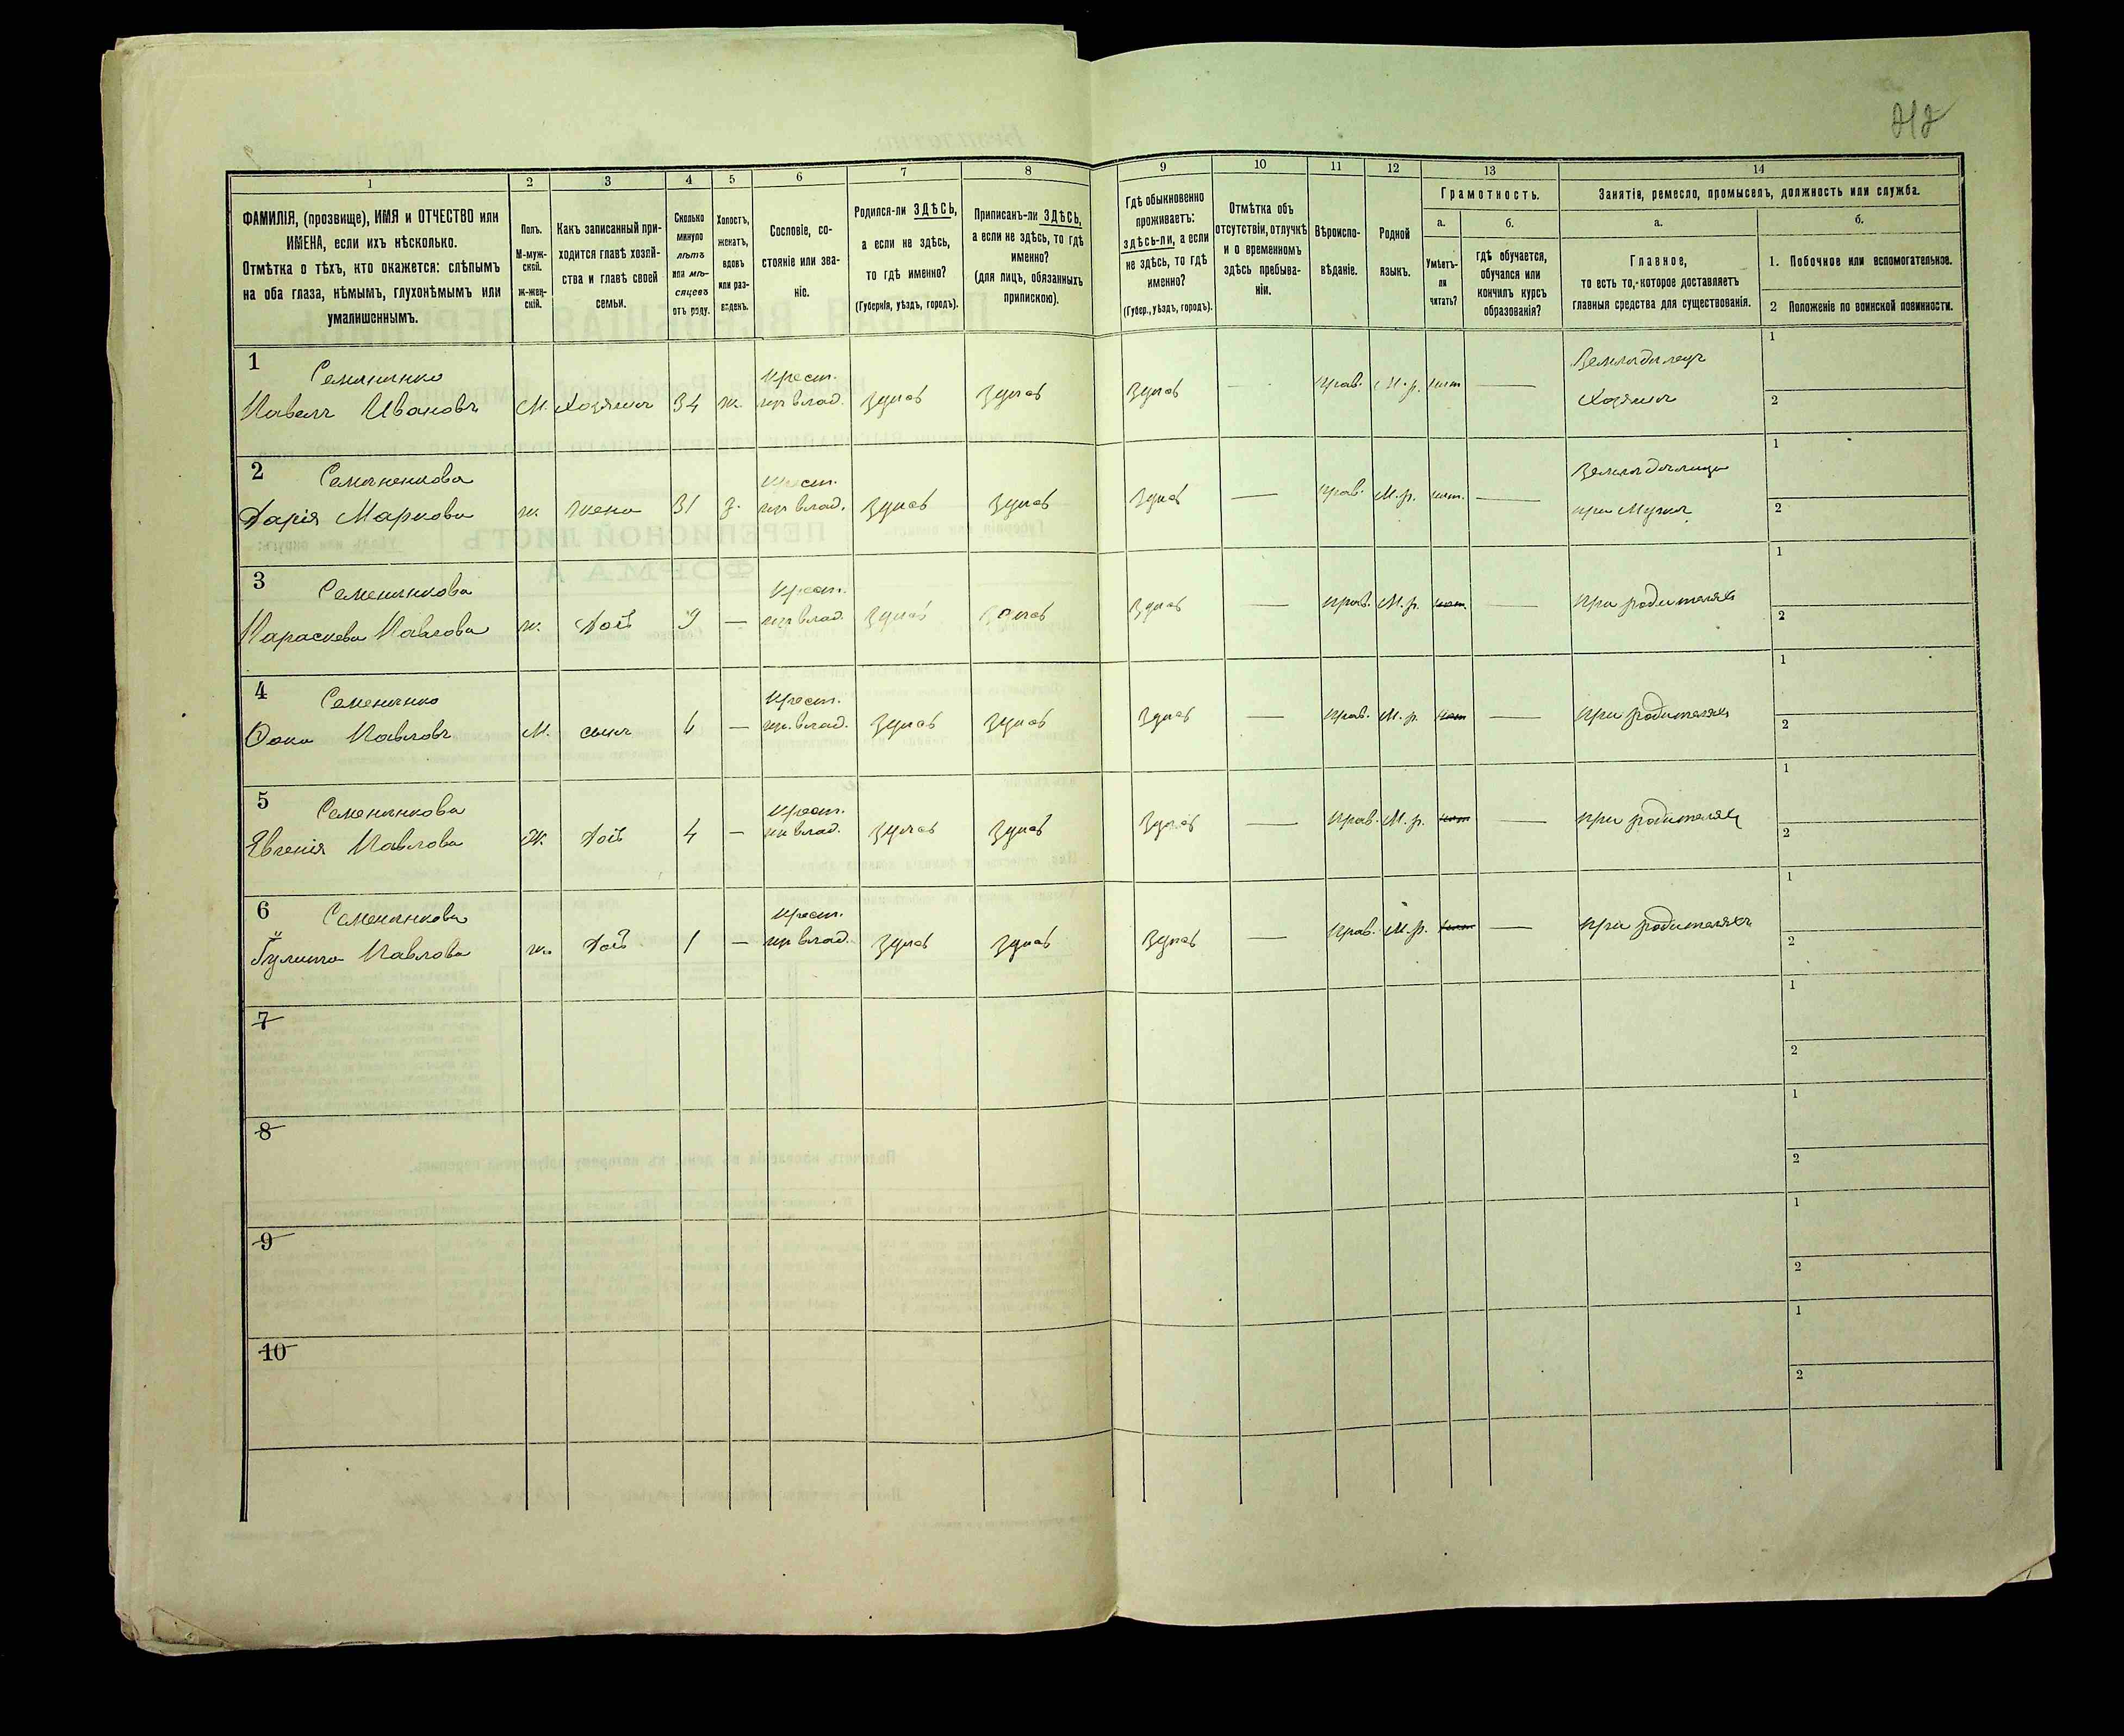 1 2 3 4 5 6 7 8 9 10 11 12 13 14
ФАМИЛІЯ, (прозвище), ИМЯ и ОТЧЕСТВО или
ИМЕНА, если ихъ нѣсколько.
Отмѣтка о тѣхъ, кто окажется: слѣпымъ
на оба глаза, нѣмымъ, глухонѣмымъ или
умалишеннымъ.
Полъ.
М-муж-
ской.
Ж-жен-
скій.
Какъ записанный при-
ходится главѣ хозяй-
ства и главѣ своей
семьи.
Сколько
минуло
лѣтъ
или мѣ-
сяцевъ
отъ роду.
Холостъ,
женатъ,
вдовъ
или раз-
веденъ.
Сословіе, со-
стояніе или зва-
ніе.
Родился-ли ЗДѢСЬ,
а если не здѣсь,
то гдѣ именно?
(Губернія, уѣздъ, городъ).
Приписанъ-ли ЗДѢСЬ,
а если не здѣсь, то гдѣ
именно?
(для лицъ, обязанныхъ
припискою).
Гдѣ обыкновенно
проживаетъ:
здѣсь-ли, а если
не здѣсь, то гдѣ
именно?
(Губер., уѣздъ, городъ).
Отмѣтка объ
отсутствіи, отлучкѣ
и о временномъ
здѣсь пребыва-
ніи.
Вѣроиспо-
вѣданіе.
Родной
языкъ.
Грамотность.
а.
Умѣетъ-
ли
читать?
б.
гдѣ обучается,
обучался или
кончилъ курсъ
образованія?
Занятія, ремесло, промыселъ, должность или служба.
а.
Главное,
то есть то, которое доставляетъ
главныя средства для существованія.
б.
1. Побочное или вспомогательное.
2 Положеніе по воинской повинности.
1 Семененко крест. Земледелецъ 1
Павелъ Ивановъ М. Хозяинъ 34 ж. влад. Здесь Здесь Здесь — прав. М. р. нет — Хозяинъ 2
2 Семененкова крест. 1
Дарія Маркова ж. жена 31 з. влад. Здесь Здесь Здесь — прав. М. р. нет. — при Мужи 2
3 Семененкова крест. 1
Параскева Павлова ж. Дочь 9 — влад. Здесь Здесь Здесь — прав. М. р. нет. — при родителях 2
4 Семененко крест. 1
Фока Павловъ М. сынъ 6 — влад. Здесь Здесь Здесь — прав. М. р. нет — при родителях 2
5 Семененкова крест. 1
Евгенія Павлова Ж. Дочь 4 — влад. Здесь Здесь Здесь — прав. М. р. нет — при родителях 2
6 Семененкова крест. 1
Павлова ж. Дочь 1 — влад. Здесь Здесь Здесь — прав. М. р. нет — при родителяхъ 2
7 1
2
8 1
2
9 1
2
10 1
2